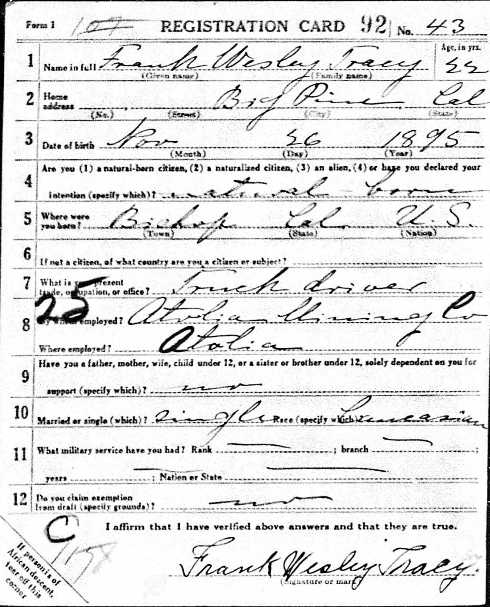 Form 1 REGISTRATION CARD 92 No. 43
Age, in yrs.
1 Name in full Frank Wesley Tracy 22
(Given name) (Family name)
2 Home address Big Pine Cal
(No.) (Street) (City) (State)
3 Date of birth Nov 26 1895
(Month) (Day) (Year)
Are you (1) a natural-born citizen, (2) a naturalized citizen, (3) an alien, (4) or have you declared your
4 intention (specify which)? natural born
5 Where were you born? Bishop Cal. U.S.
(Town) (State) (Nation)
6 If not a citizen, of what country are you a citizen or subject?
7 What is your present trade, occupation, or office? Truck driver
25
8 By whom employed? Atolia Mining Co
Where employed? Atolia
9 Have you a father, mother, wife, child under 12, or a sister or brother under 12, solely dependent on you for
support (specify which)? no
10 Married or single (which)? single Race (specify which)? Caucasian
11 What military service have you had? Rank ; branch
years ; Nation or State
12 Do you claim exemption from draft (specify grounds)? no
I affirm that I have verified above answers and that they are true.
C
If person is of
African descent,
tear off this
corner
Frank Wesley Tracy.
(Signature or mark)